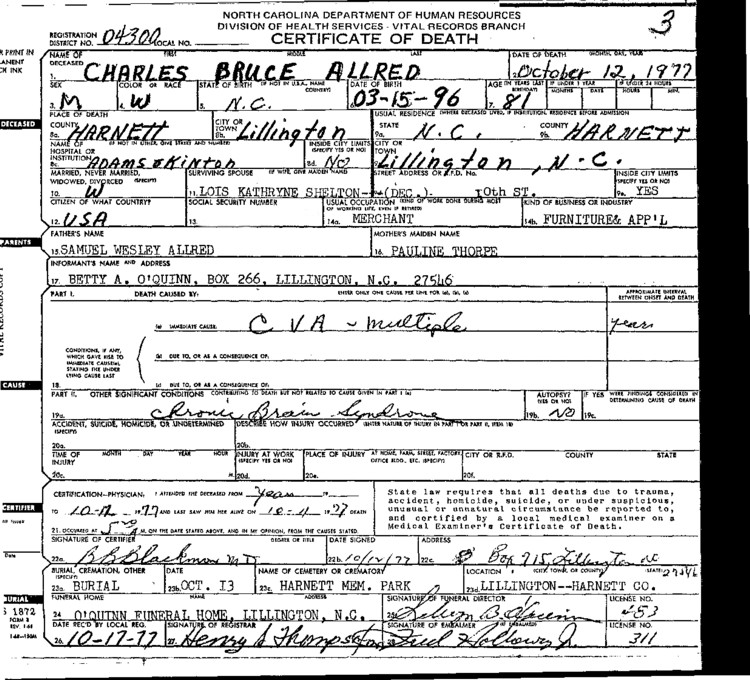 NORTH CAROLINA DEPARTMENT OF HUMAN RESOURCES
DIVISION OF HEALTH SERVICES - VITAL RECORDS BRANCH
CERTIFICATE OF DEATH
3
REGISTRATION DISTRICT NO. 04300 LOCAL NO.
NAME OF DECEASED FIRST MIDDLE LAST DATE OF DEATH (MONTH, DAY, YEAR)
1. CHARLES BRUCE ALLRED 2. October 12, 1977
SEX COLOR OR RACE STATE OF BIRTH (IF NOT IN U.S.A., NAME COUNTRY) DATE OF BIRTH AGE (IN YEARS LAST BIRTHDAY) IF UNDER 1 YEAR MONTHS DAYS IF UNDER 24 HOURS HOURS MIN.
3. M 4. W 5. N.C. 6. 03-15-96 7. 81
PLACE OF DEATH USUAL RESIDENCE (WHERE DECEASED LIVED, IF INSTITUTION, RESIDENCE BEFORE ADMISSION)
DECEASED
COUNTY CITY OR TOWN STATE COUNTY
8a. HARNETT 8b. Lillington 9a. N.C. 9b. HARNETT
NAME OF HOSPITAL OR INSTITUTION (IF NOT IN EITHER, GIVE STREET AND NUMBER) INSIDE CITY LIMITS (SPECIFY YES OR NO) CITY OR TOWN
8c. ADAMS & Kinton 8d. NO Lillington, N.C.
MARRIED, NEVER MARRIED, WIDOWED, DIVORCED (SPECIFY) SURVIVING SPOUSE (IF WIFE, GIVE MAIDEN NAME) STREET ADDRESS OR R.F.D. No. INSIDE CITY LIMITS (SPECIFY YES OR NO)
10. W 11. LOIS KATHRYNE SHELTON--(DEC.) 10th ST. 9e. YES
CITIZEN OF WHAT COUNTRY? SOCIAL SECURITY NUMBER USUAL OCCUPATION (KIND OF WORK DONE DURING MOST OF WORKING LIFE, EVEN IF RETIRED) KIND OF BUSINESS OR INDUSTRY
12. USA 13. 14a. MERCHANT 14b. FURNITURE& APP'L
PARENTS
FATHER'S NAME MOTHER'S MAIDEN NAME
15. SAMUEL WESLEY ALLRED 16. PAULINE THORPE
INFORMANT'S NAME AND ADDRESS
17. BETTY A. O'QUINN, BOX 266, LILLINGTON, N.C. 27546
PART I. DEATH CAUSED BY: ENTER ONLY ONE CAUSE PER LINE FOR (a), (b), (c) APPROXIMATE INTERVAL BETWEEN ONSET AND DEATH
(a) IMMEDIATE CAUSE: CVA - multiple years
CONDITIONS, IF ANY, WHICH GAVE RISE TO IMMEDIATE CAUSE(a), STATING THE UNDERLYING CAUSE LAST
(b) DUE TO, OR AS A CONSEQUENCE OF:
CAUSE
18. (c) DUE TO, OR AS A CONSEQUENCE OF:
PART II. OTHER SIGNIFICANT CONDITIONS CONTRIBUTING TO DEATH BUT NOT RELATED TO CAUSE GIVEN IN PART I (a) AUTOPSY? (YES OR NO) IF YES WERE FINDINGS CONSIDERED IN DETERMINING CAUSE OF DEATH
19a. Chronic Brain Syndrome 19b. NO 19c.
ACCIDENT, SUICIDE, HOMICIDE, OR UNDETERMINED (SPECIFY) DESCRIBE HOW INJURY OCCURRED (ENTER NATURE OF INJURY IN PART I OR PART II, ITEM 18)
20a. 20b.
TIME OF INJURY MONTH DAY YEAR HOUR INJURY AT WORK (SPECIFY YES OR NO) PLACE OF INJURY AT HOME, FARM, STREET, FACTORY, OFFICE BLDG., ETC. (SPECIFY) CITY OR R.F.D. COUNTY STATE
20c. M. 20d. 20e. 20f.
CERTIFICATION-PHYSICIAN: I ATTENDED THE DECEASED FROM Years 19
TO 10-12 1977 AND LAST SAW HIM/HER ALIVE ON 10-11 1977 DEATH
21. OCCURRED AT M. ON THE DATE STATED ABOVE, AND IN MY OPINION, FROM THE CAUSES STATED.
State law requires that all deaths due to trauma,
accident, homicide, suicide, or under suspicious,
unusual or unnatural circumstance be reported to,
and certified by a local medical examiner on a
Medical Examiner's Certificate of Death.
CERTIFIER
SIGNATURE OF CERTIFIER DEGREE OR TITLE DATE SIGNED ADDRESS
22a. B B Blackmon MD 22b. 10/12/77 22c. Box 715, Lillington NC
BURIAL, CREMATION, OTHER (SPECIFY) DATE NAME OF CEMETERY OR CREMATORY LOCATION (CITY, TOWN, OR COUNTY) (STATE) 27546
23a. BURIAL 23b. OCT. 13 23c. HARNETT MEM. PARK 23d. LILLINGTON--HARNETT CO.
BURIAL
FUNERAL HOME NAME ADDRESS SIGNATURE OF FUNERAL DIRECTOR LICENSE NO.
24. O'QUINN FUNERAL HOME, LILLINGTON, N.C. 25. 453
DATE REC'D BY LOCAL REG. SIGNATURE OF REGISTRAR SIGNATURE OF EMBALMER (IF EMBALMED) LICENSE NO.
26. 10-17-77 27. Henry S Thompson Fred Holloway Jr. 311
1872
FORM 8